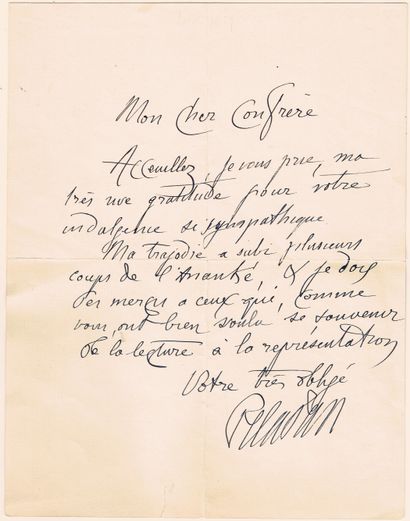 Mon Cher Confrère
Accueillez, je vous prie, ma
très vive gratitude pour votre
indulgence si sympathique
Ma tragédie a subi plusieurs
coups de l'Ananké, & je dois
des mercis a ceux qui, comme
vous, ont bien voulu se souvenir
de la lecture à la représentation
Votre très obligé
Peladan